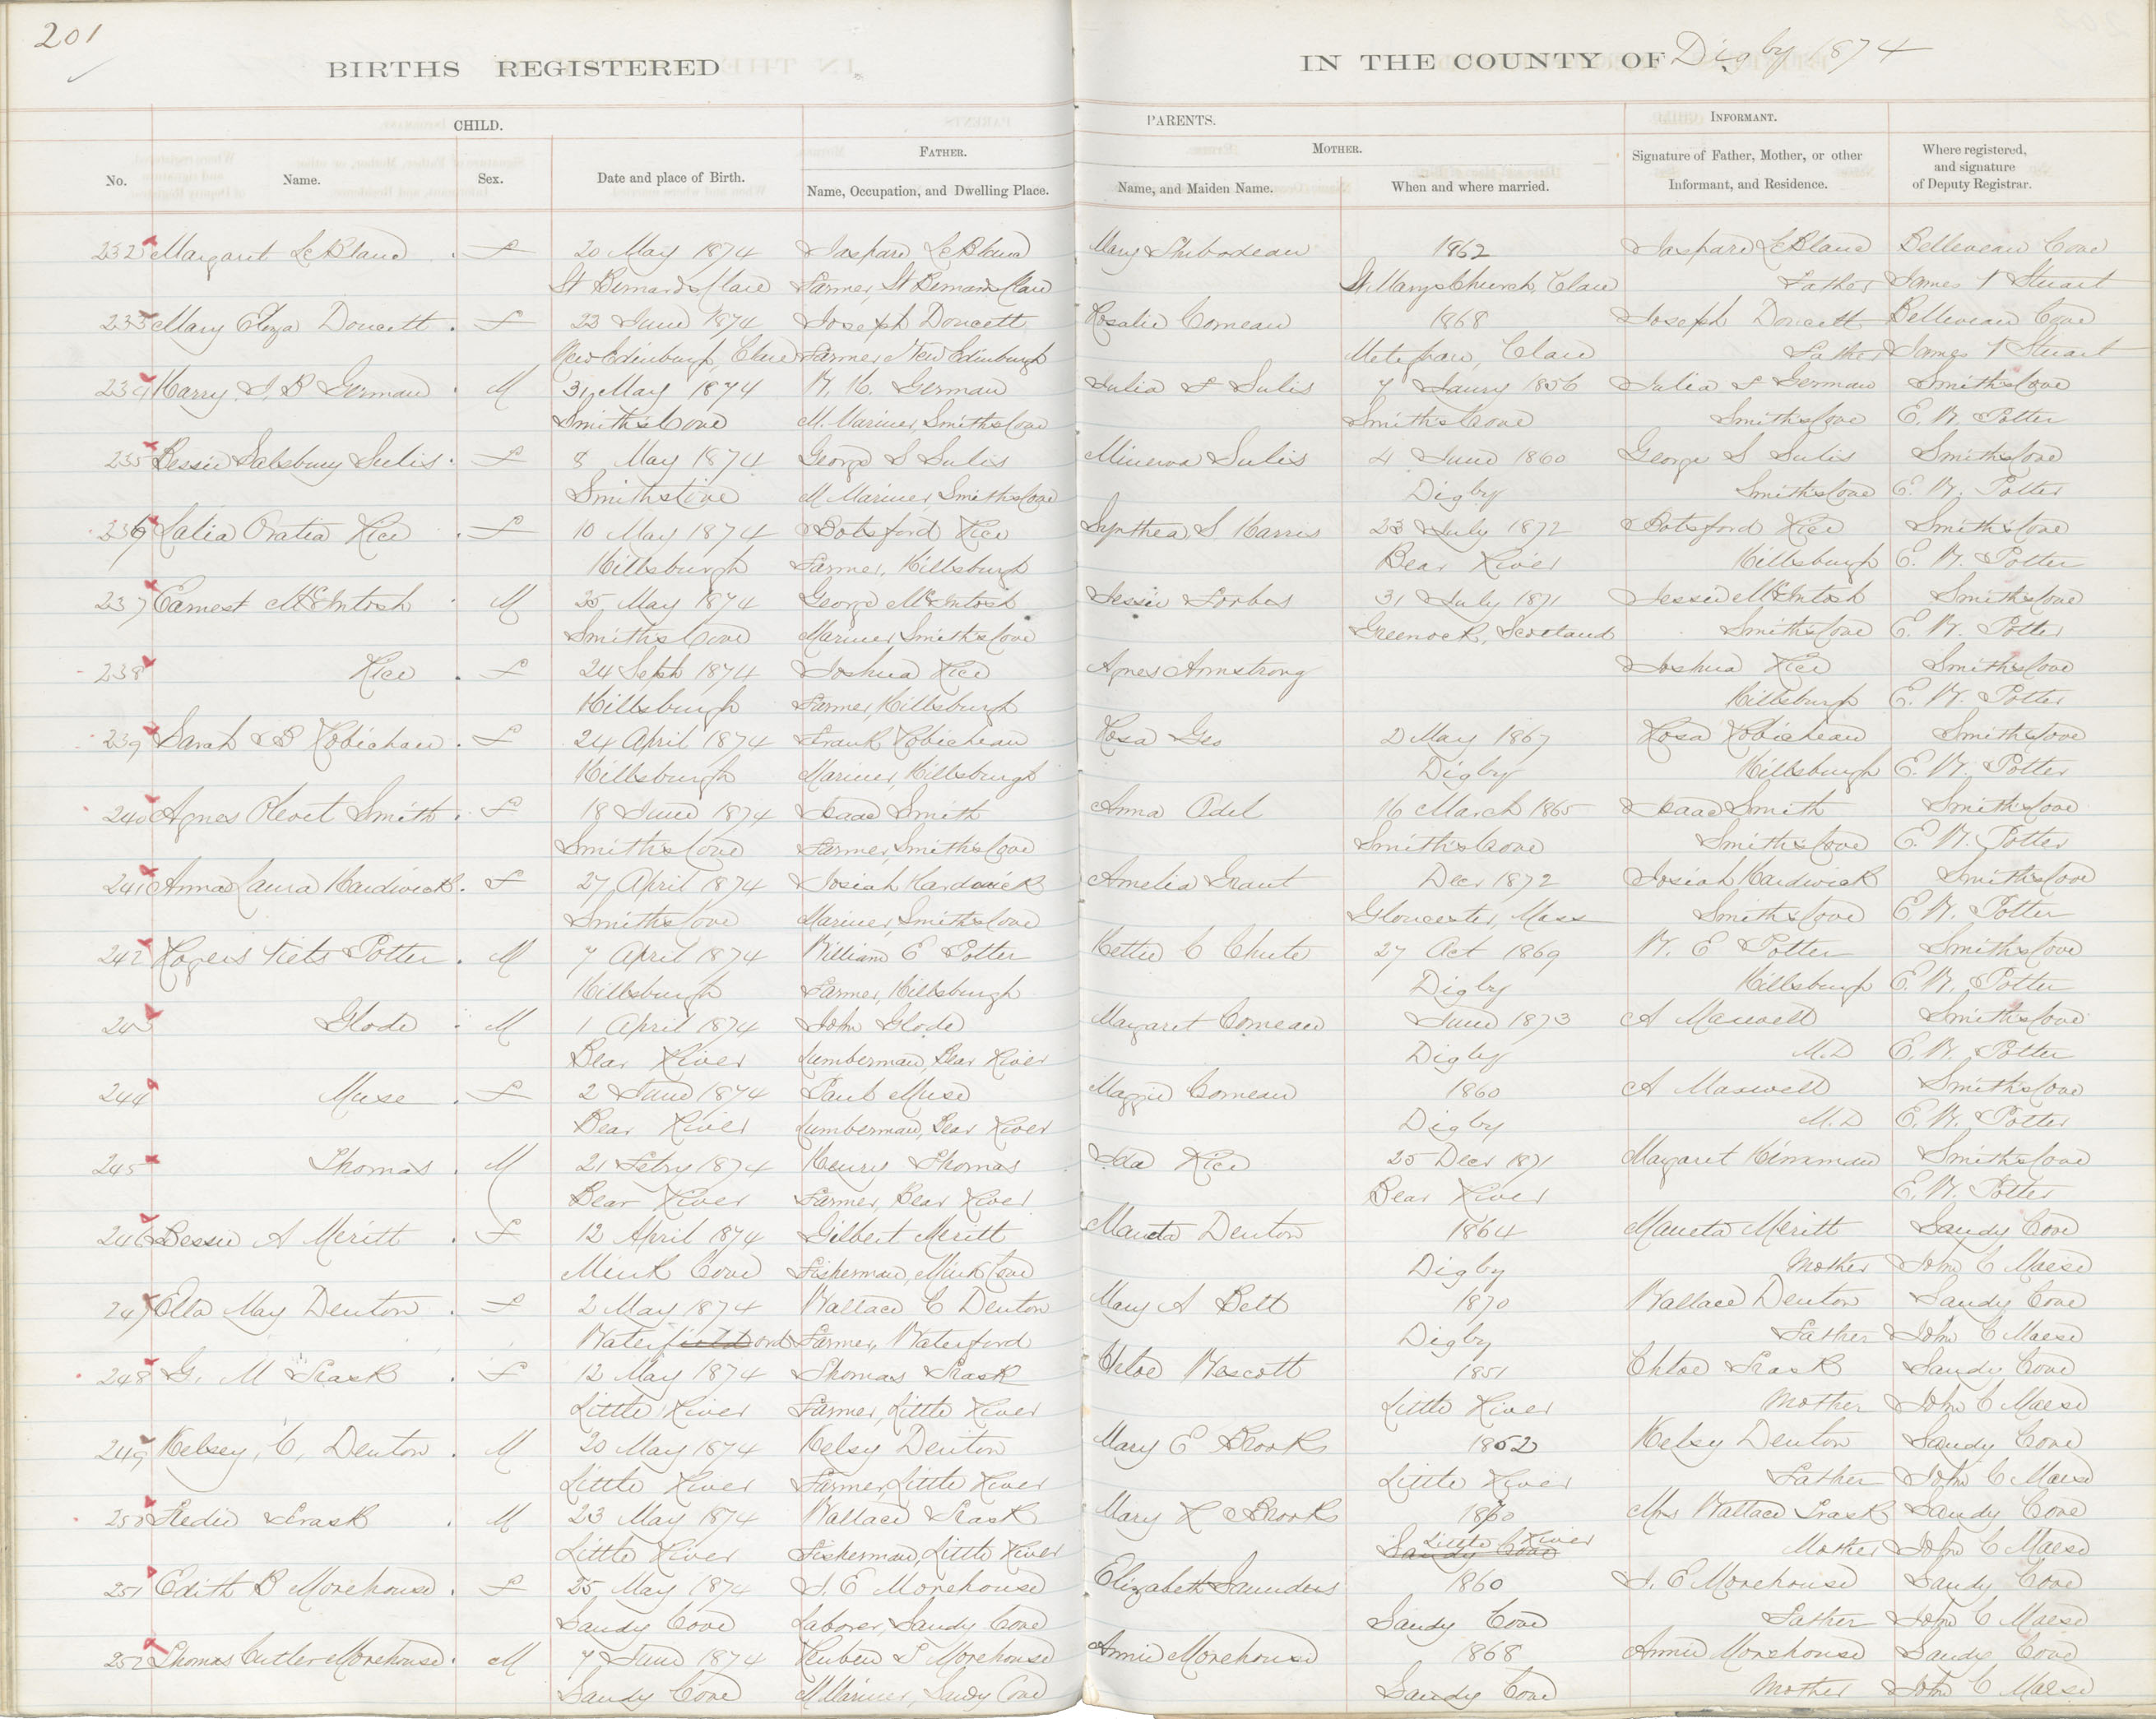 201
BIRTHS REGISTERED IN THE COUNTY OF Digby 1874
CHILD. PARENTS. INFORMANT.
FATHER. MOTHER.
No. Name. Sex. Date and place of Birth. Name, Occupation, and Dwelling Place. Name, and Maiden Name. When and where married. Signature of Father, Mother, or other Informant, and Residence. Where registered, and signature of Deputy Registrar.
232 Margaret LeBlanc f 20 May 1874 Jaspard LeBlanc Mary Thibodeau 1862 Jaspard LeBlanc Belleveau Cove
St Bernards Clare Farmer, St Bernards Clare St Marys Church, Clare Father James T Stuart
233 Mary Eliza Doucett f 23 June 1874 Joseph Doucett Rosalie Comeau 1868 Joseph Doucett Belleveau Cove
New Edinburgh, Clare Farmer New Edinburgh Meteghan, Clare Father James T Stuart
234 Harry J. B German M 31 May 1874 W. H. German Julia F Sulis 7 Jaury 1856 Julia F German Smiths Cove
Smiths Cove M. Mariner, Smiths Cove Smiths Cove Smiths Cove E. W. Potter
235 Bessie Salsbury Sulis f 8 May 1874 George S Sulis Minerva Sulis 4 June 1860 George S Sulis Smiths Cove
Smiths Cove M Mariner, Smiths Cove Digby Smiths Cove E. W. Potter
236 Latia Oratia Rice f 10 May 1874 Botsford Rice Synthea S Harris 23 July 1872 Botsford Rice Smiths Cove
Hillsburgh Farmer, Hillsburgh Bear River Hillsburgh E. W. Potter
237 Earnest McIntosh M 25 May 1874 George McIntosh Jessie Forbes 31 July 1871 Jessie McIntosh Smiths Cove
Smiths Cove Mariner, Smiths Cove Greenock, Scotland Smiths Cove E. W. Potter
238 Rice f 24 Sept 1874 Joshua Rice Agnes Armstrong Joshua Rice Smiths Cove
Hillsburgh Farmer, Hillsburgh Hillsburgh E. W. Potter
239 Sarah Robichau f 24 April 1874 Frank Robicheau Rosa Geo 2 May 1867 Rosa Robicheau Smiths Cove
Hillsburgh Mariner, Hillsburgh Digby Hillsburgh E. W. Potter
240 Agnes Olevet Smith f 18 June 1874 Isaac Smith Anna Odel 16 March 1865 Isaac Smith Smiths Cove
Smiths Cove Farmer, Smiths Cove Smiths Cove Smiths Cove E. W. Potter
241 Anna Laura Hardwick f 27 April 1874 Josiah Hardwick Amelia Grant Decr 1872 Josiah Hardwick Smiths Cove
Smiths Cove Mariner, Smiths Cove Gloucester, Mass Smiths Cove E. W. Potter
242 Rogers Viets Potter M 7 April 1874 William E Potter Hettie C Chute 27 Oct 1869 W. E Potter Smiths Cove
Hillsburgh Farmer, Hillsburgh Digby Hillsburgh E. W. Potter
243 Glode M 1 April 1874 John Glode Margaret Comeau June 1873 A Maxwell Smiths Cove
Bear River Lumberman, Bear River Digby M.D E. W. Potter
244 Muse f 2 June 1874 Paul Muse Maggie Comeau 1860 A Maxwell Smiths Cove
Bear River Lumberman, Bear River Digby M.D E. W. Potter
245 Thomas M 21 Febry 1874 Henry Thomas Ida Rice 25 Decr 1871 Margaret Smiths Cove
Bear River Farmer, Bear River Bear River E. W. Potter
246 Bessie A Meritt f 12 April 1874 Gilbert Meritt Maneta Denton 1864 Maneta Meritt Sandy Cove
Mink Cove Fisherman, Mink Cove Digby Mother John C Maese
247 Ella May Denton f 2 May 1874 Wallace C Denton Mary A Bell 1870 Wallace Denton Sandy Cove
Waterford Farmer, Waterford Digby Father John C Maese
248 G. M Trask f 12 May 1874 Thomas Trask Chloe Wescott 1851 Chloe Trask Sandy Cove
Little River Farmer, Little River Little River Mother John C Maese
249 Kelsey, C, Denton M 20 May 1874 Kelsy Denton Mary E Brooks 1852 Kelsy Denton Sandy Cove
Little River Farmer, Little River Little River Father John C Maese
250 Fredie Trask M 23 May 1874 Wallace Trask Mary R Brooks 1860 Mrs Wallace Trask Sandy Cove
Little River Fisherman, Little River Sandy Cove Little River Mother John C Maese
251 Edith B Morehouse f 25 May 1874 J. E Morehouse Elizabeth Saunders 1860 J. E Morehouse Sandy Cove
Sandy Cove Laborer, Sandy Cove Sandy Cove Father John C Maese
252 Thomas Cutler Morehouse M 7 June 1874 Reuben T Morehouse Annie Morehouse 1868 Annie Morehouse Sandy Cove
Sandy Cove M Mariner, Sandy Cove Sandy Cove Mother John C Maese